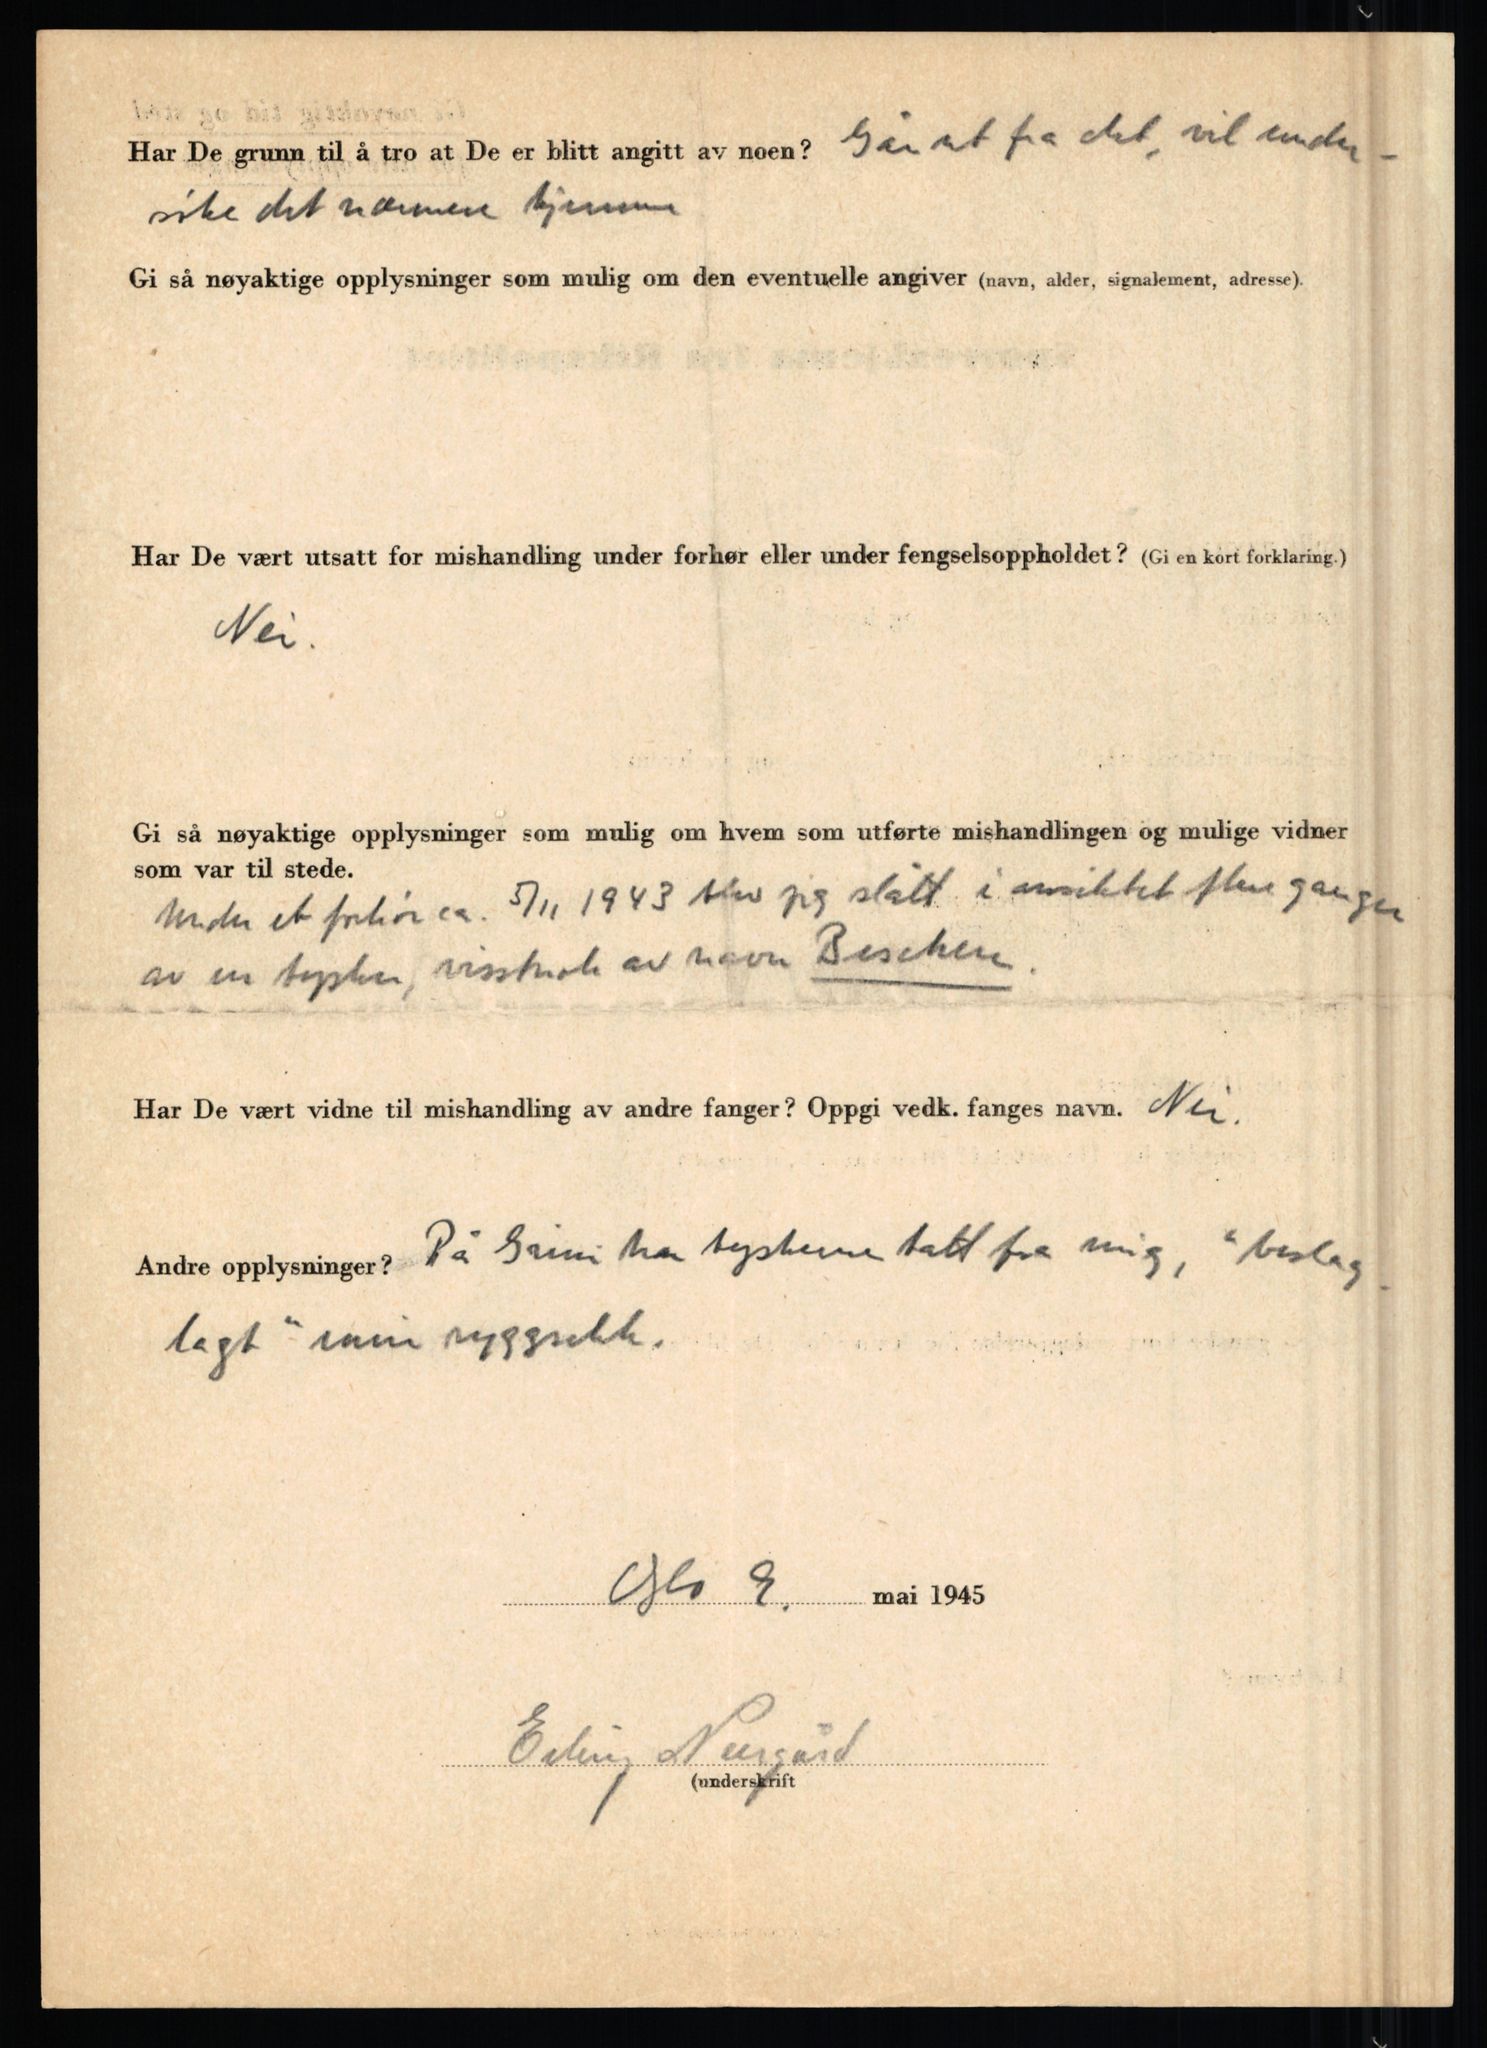 Har De grunn til å tro at De er blitt angitt av noen? Går ut fra det, vil under-
søke det nærmere hjemme
Gi så nøyaktige opplysninger som mulig om den eventuelle angiver (navn, alder, signalement, adresse).
Har De vært utsatt for mishandling under forhør eller under fengselsoppholdet? (Gi en kort forklaring.)
Nei.
Gi så nøyaktige opplysninger som mulig om hvem som utførte mishandlingen og mulige vidner
som var til stede.
Under et forhør ca. 5/11 1943 blev jeg slått i ansiktet flere ganger
av en tysker, visstnok av navn
Har De vært vidne til mishandling av andre fanger? Oppgi vedk. fanges navn. Nei.
Andre opplysninger? På Grini har tyskerne tatt fra mig, "beslag-
lagt" min ryggsekk.
Oslo 9. mai 1945
Erling
(underskrift